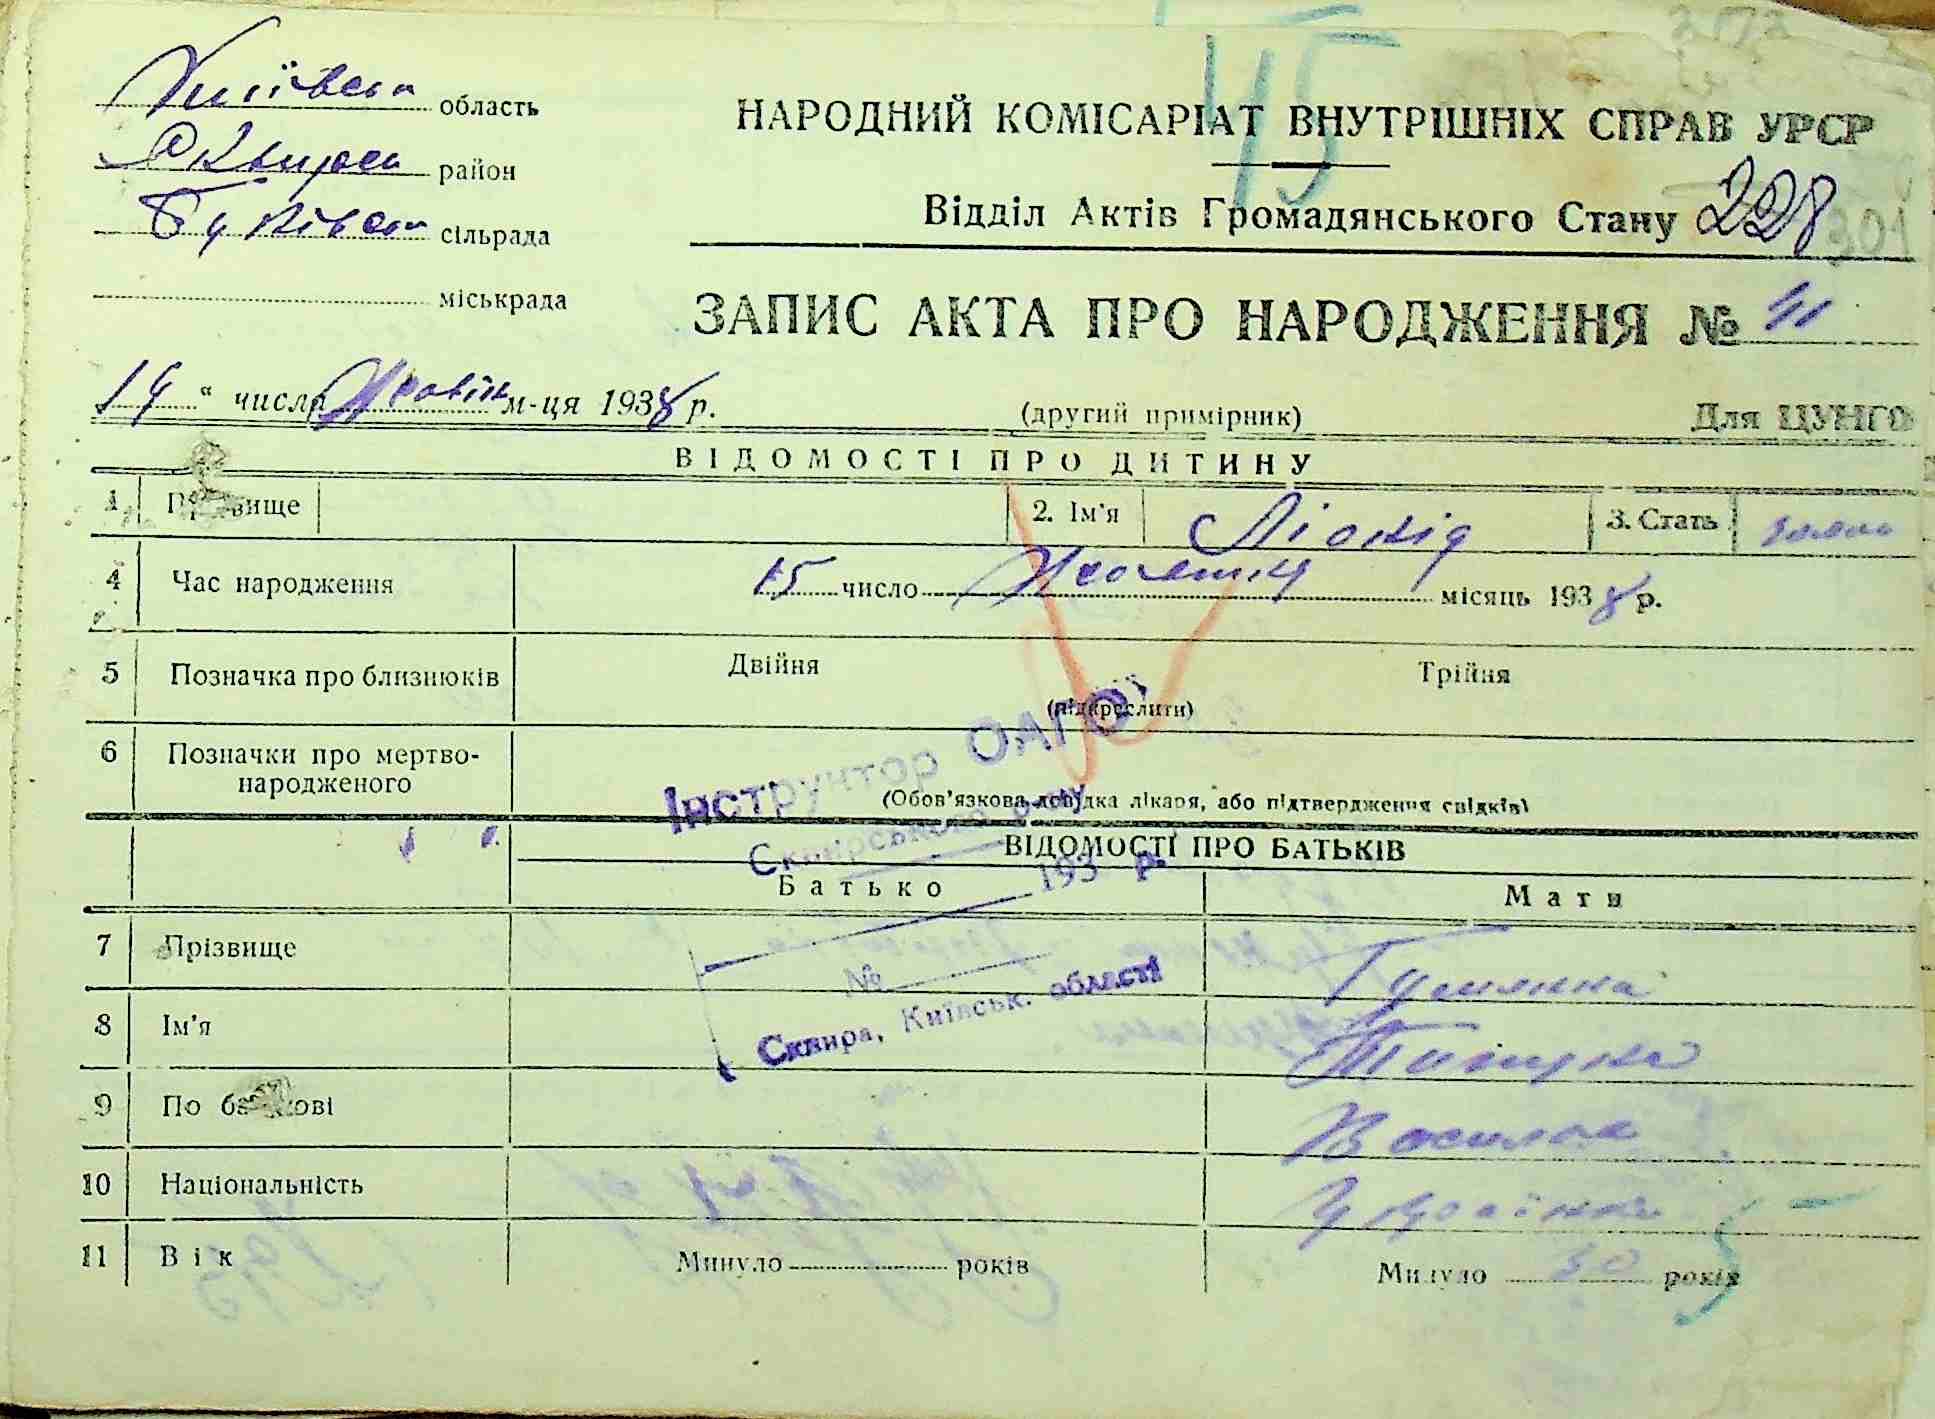 Київськ область
Сквирськ район
Буківськ сільрада
міськрада
45
НАРОДНИЙ КОМІСАРІАТ ВНУТРІШНІХ СПРАВ УРСР
Відділ Актів Громадянського Стану 228
301
ЗАПИС АКТА ПРО НАРОДЖЕННЯ № 41
14 “ числа Жовтня м-ця 1938 р. (другий примірник) Для ЦУНГО
ВІДОМОСТІ ПРО ДИТИНУ
1 Прізвище 2. Ім’я Ліонід 3. Стать
4 Час народження 15 число місяць 1938 р.
5 Позначка про близнюків Двійня Трійня
(підкреслити)
6 Позначки про мертво-
народженого
(Обов’язкова довідка лікаря, або підтвердження свідків)
Інструктор ОАГС
Сквирського р-ну
193 р.
№
Сквира, Київськ. області
ВІДОМОСТІ ПРО БАТЬКІВ
Батько Мати
7 Прізвище
8 Ім’я
9 По батькові
10 Національність Українка
11 Вік Минуло років Минуло 30 років